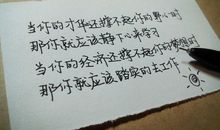 当你的才华还撑不起你的野心时
那你就应该静下心来学习
当你的经济还撑不起你的梦想时
那你就应该踏实的去工作